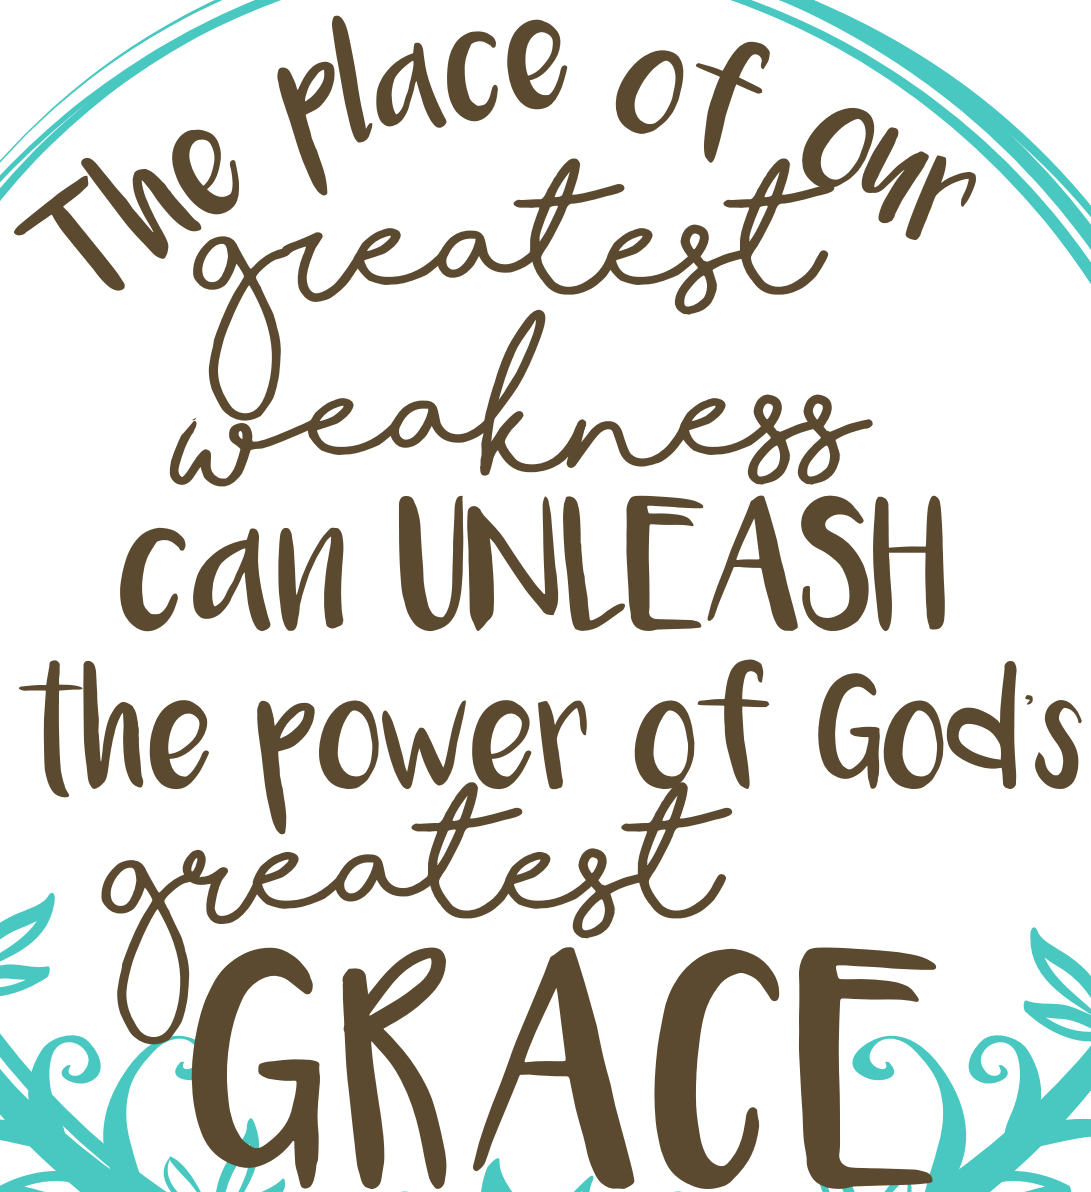 The place of our
greatest
weakness
can UNLEASH
the power of God's
greatest
GRACE